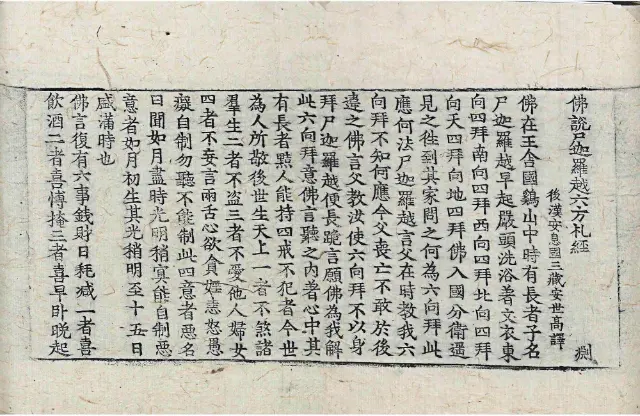 佛說尸迦羅越六方礼經
後漢安息國三藏安世高譯
佛在王舍國鷄山中時有長者子名
尸迦羅越早起嚴頭洗浴著文衣東
向四拜南向四拜西向四拜北向四拜
向天四拜向地四拜佛入國分衛遥
見之徃到其家問之何為六向拜此
應何法尸迦羅越言父在時教我六
向拜不知何應今父喪亡不敢於後
違之佛言父教汝使六向拜不以身
拜尸迦羅越便長跪言願佛為我解
此六向拜意佛言聽之内著心中其
有長者黠人能持四戒不犯者今世
為人所敬後世生天上一者不煞諸
羣生二者不盗三者不愛他人婦女
四者不妄言兩舌心欲貪婬恚怒愚
癡自制勿聽不能制此四意者惡名
日聞如月盡時光明稍冥能自制惡
意者如月初生其光稍明至十五日
盛滿時也
佛言復有六事錢財日耗减一者喜
飲酒二者喜愽掩三者喜早卧晚起